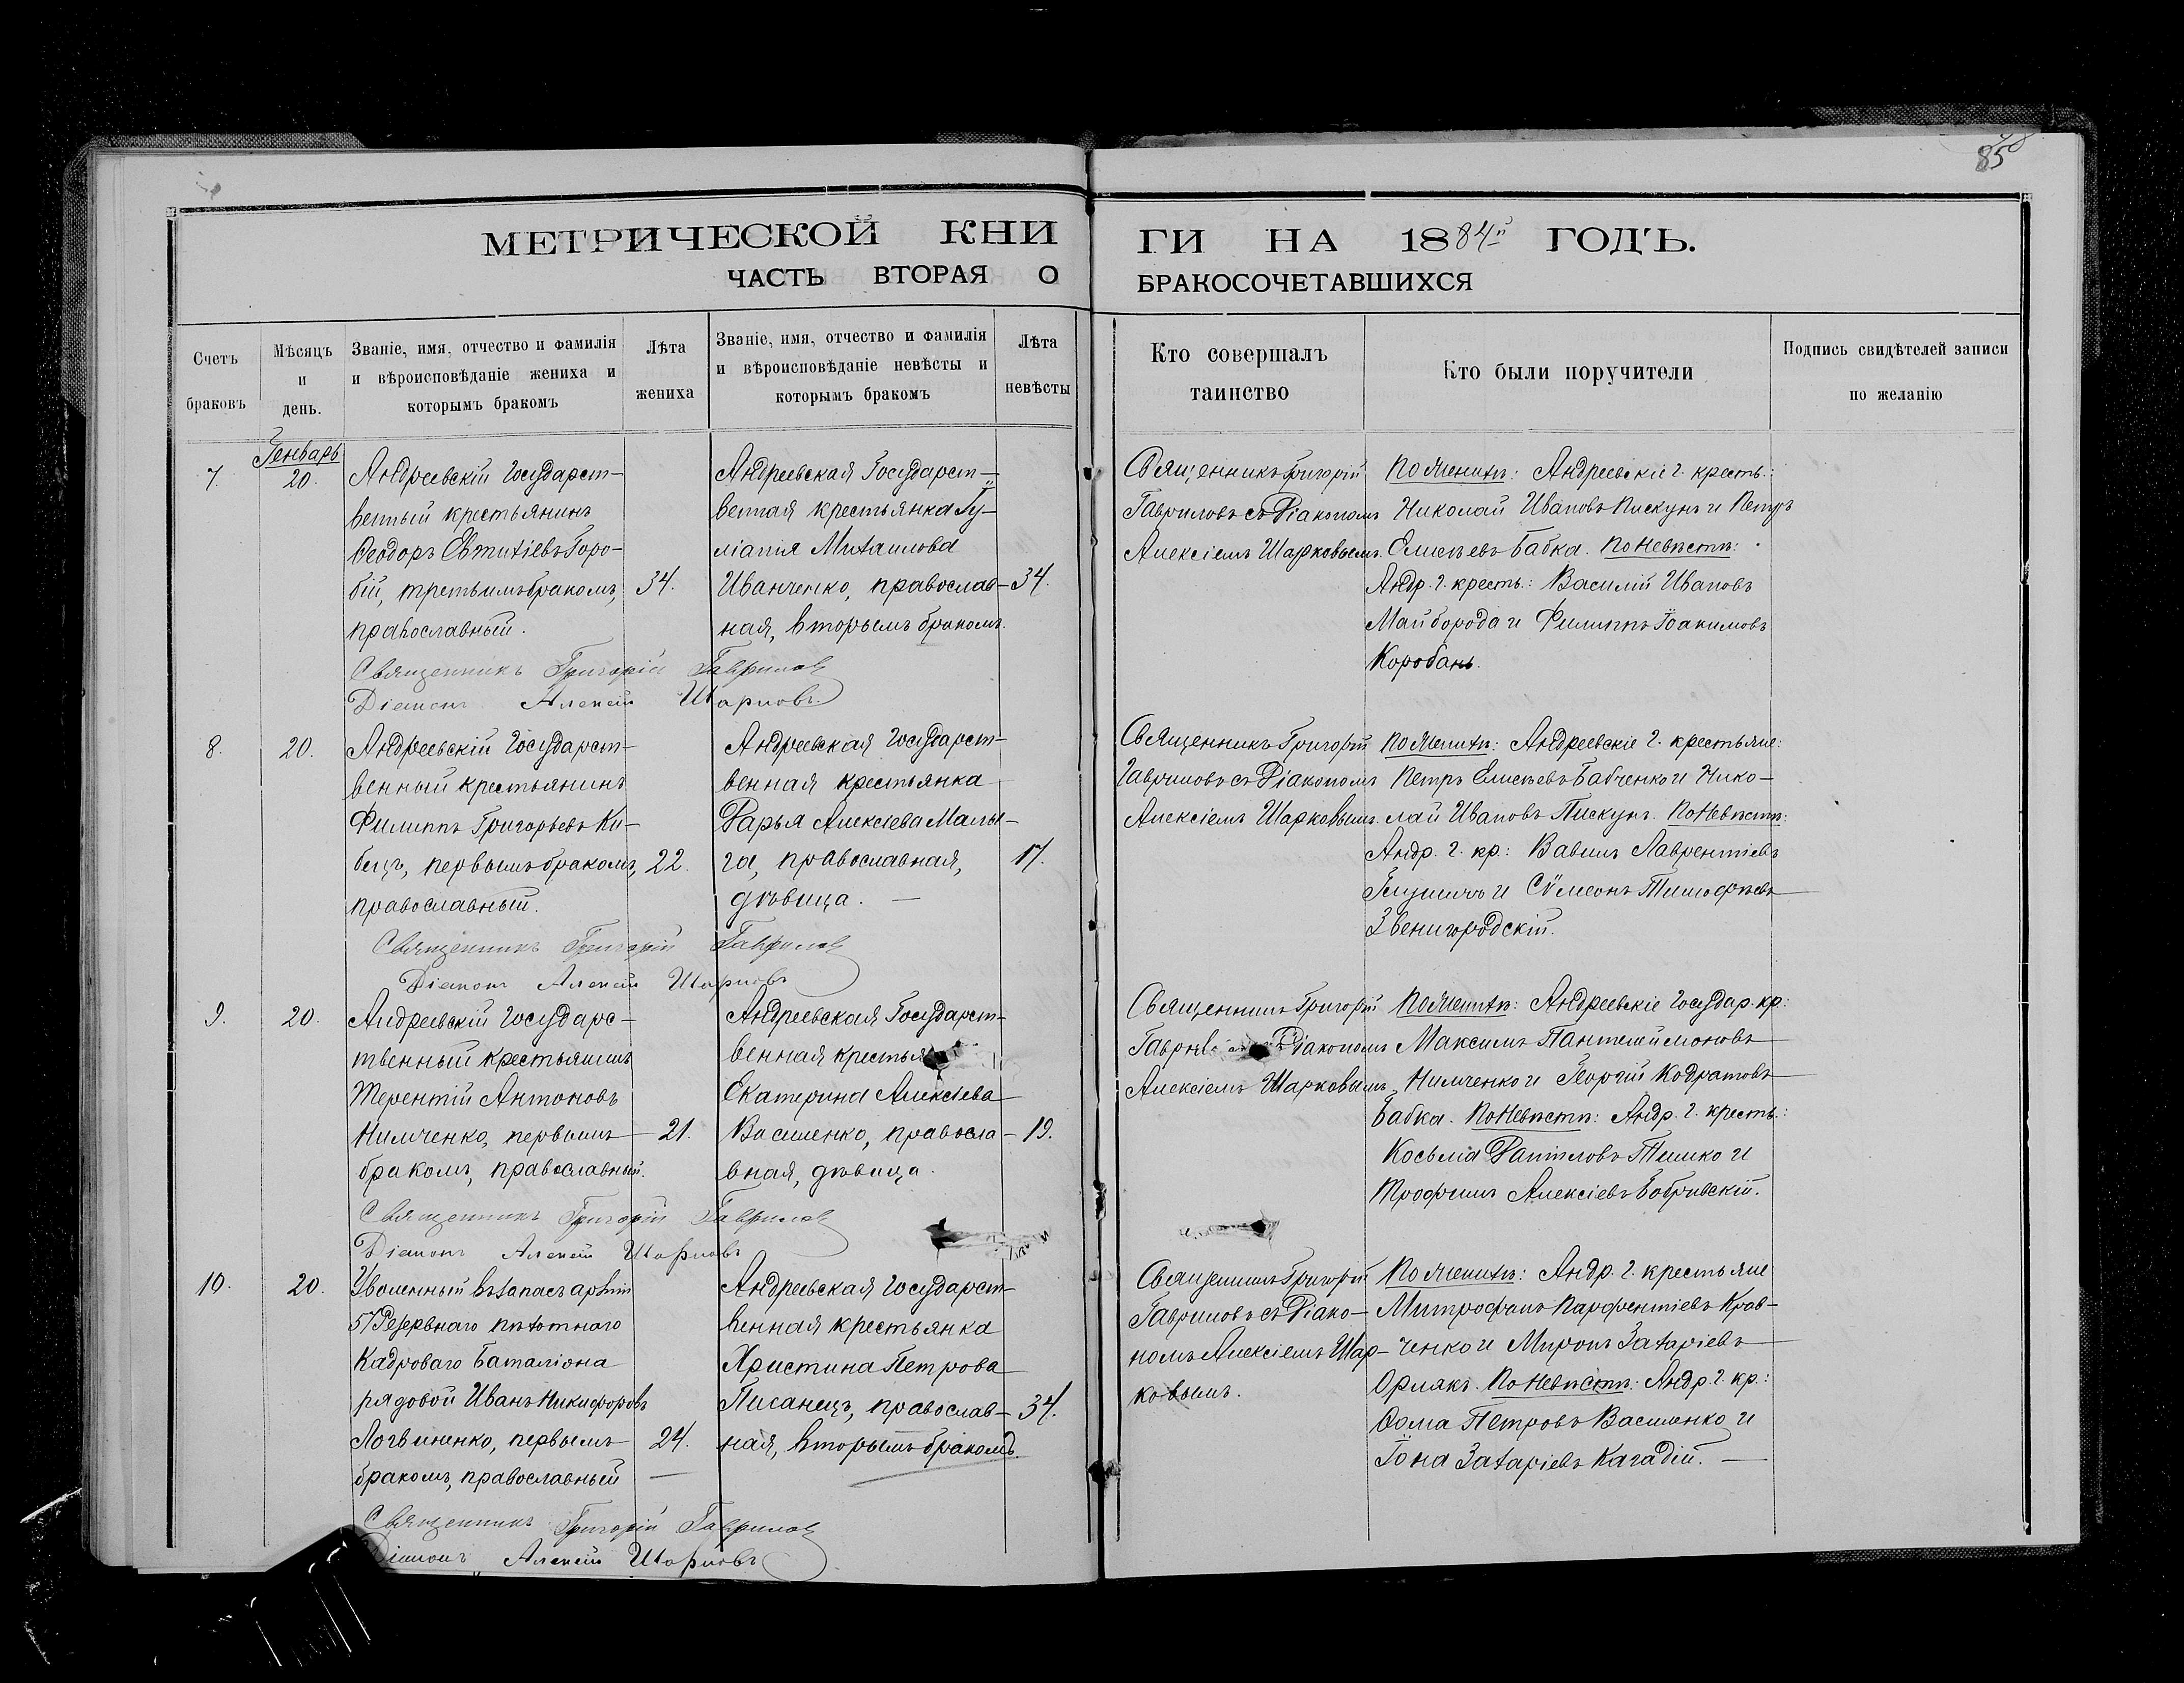 85
МЕТРИЧЕСКОЙ КНИ
ЧАСТЬ ВТОРАЯ О
ГИ НА 1884й ГОДЪ.
БРАКОСОЧЕТАВШИХСЯ
Счетъ браковъ
Мѣсяцъ и день.
Званіе, имя, отчество и фамилія
и вѣроисповѣданіе жениха и
которымъ бракомъ
Лѣта
жениха
Званіе, имя, отчество и фамилія
и вѣроисповѣданіе невѣсты и
которымъ бракомъ
Лѣта
невѣсты
Кто совершалъ
таинство
Кто были поручители
Подпись свидѣтелей записи
по желанію
Генварь
7.
20.
Андреевскій Государст-
венный крестьянинъ
Ѳеодоръ Евтихіевъ Горо-
бій, третьимъ бракомъ,
православный.
34.
Андреевская Государст-
венная крестьянка Іу-
ліанія Михаилова
Иванченко, православ-
ная, вторымъ бракомъ.
34.
Священникъ Григорій
Гавриловъ съ Діакономъ
Алексіемъ Шарковымъ.
По Женихѣ: Андреевскіе г. кресть.:
Николай Ивановъ Пискунъ и Петръ
Елисѣевъ Бабка. По Невѣстѣ:
Андр. г. кресть.: Василій Ивановъ
Майборода и Филиппъ Іоакимовъ
Коробань.
Священникъ Григорій Гавриловъ
Діаконъ Алексій Шарковъ
8.
20.
Андреевскій Государст-
венный крестьянинъ
Филиппъ Григорьевъ Ки-
бецъ, первымъ бракомъ,
православный.
22.
Андреевская Государст-
венная крестьянка
Дарья Алексіева Малы-
га, православная,
дѣвица.
17.
Священникъ Григорій
Гавриловъ съ Діакономъ
Алексіемъ Шарковымъ.
По Женихѣ: Андреевскіе г. крестьяне:
Петръ Елисѣевъ Бабченко и Нико-
лай Ивановъ Пискунъ. По Невѣстѣ:
Андр. г. кр.: Вавилъ Лаврентіевъ
и Сѵмеонъ Тимофѣевъ
Звенигородскій.
Священникъ Григорій Гавриловъ
Діаконъ Алексій Шарковъ
9.
20.
Андреевскій Государс-
твенный крестьянинъ
Терентій Антоновъ
Нимченко, первымъ
бракомъ, православный.
21.
Андреевская Государст-
венная крестья
Екатерина Алексіева
Василенко, правосла-
вная, дѣвица.
19.
Священникъ Григорій
Діакономъ
Алексіемъ Шарковымъ.
По Женихѣ: Андреевскіе Государ. кр:
Максимъ Пантелеймоновъ
Нимченко и Георгій Кодратовъ
Бабка. По Невѣстѣ: Андр. г. кресть.:
Косьма Даниловъ Тишко и
Трофимъ Алексіевъ Бобривскій.
Священникъ Григорій Гавриловъ
Діаконъ Алексій Шарковъ
10.
20.
Уволенный въ запасъ арміи
57 Резервнаго пѣхотнаго
Кадроваго Баталіона
рядовой Иванъ Никифоровъ
Логвиненко, первымъ
бракомъ, православный
24.
Андреевская Государст-
венная крестьянка
Христина Петрова
Писанецъ, православ-
ная, вторымъ бракомъ.
34.
Священникъ Григорій
Гавриловъ съ Діако-
номъ Алексіемъ Шар-
ковымъ.
По Женихѣ: Андр. г. крестьяне
Митрофанъ Парфентіевъ Крав-
ченко и Миронъ Захаріевъ
Ормякъ. По Невѣстѣ: Андр. г. кр.:
Ѳома Петровъ Василенко и
Іона Захаріевъ Кагадій.
Священникъ Григорій Гавриловъ
Діаконъ Алексій Шарковъ